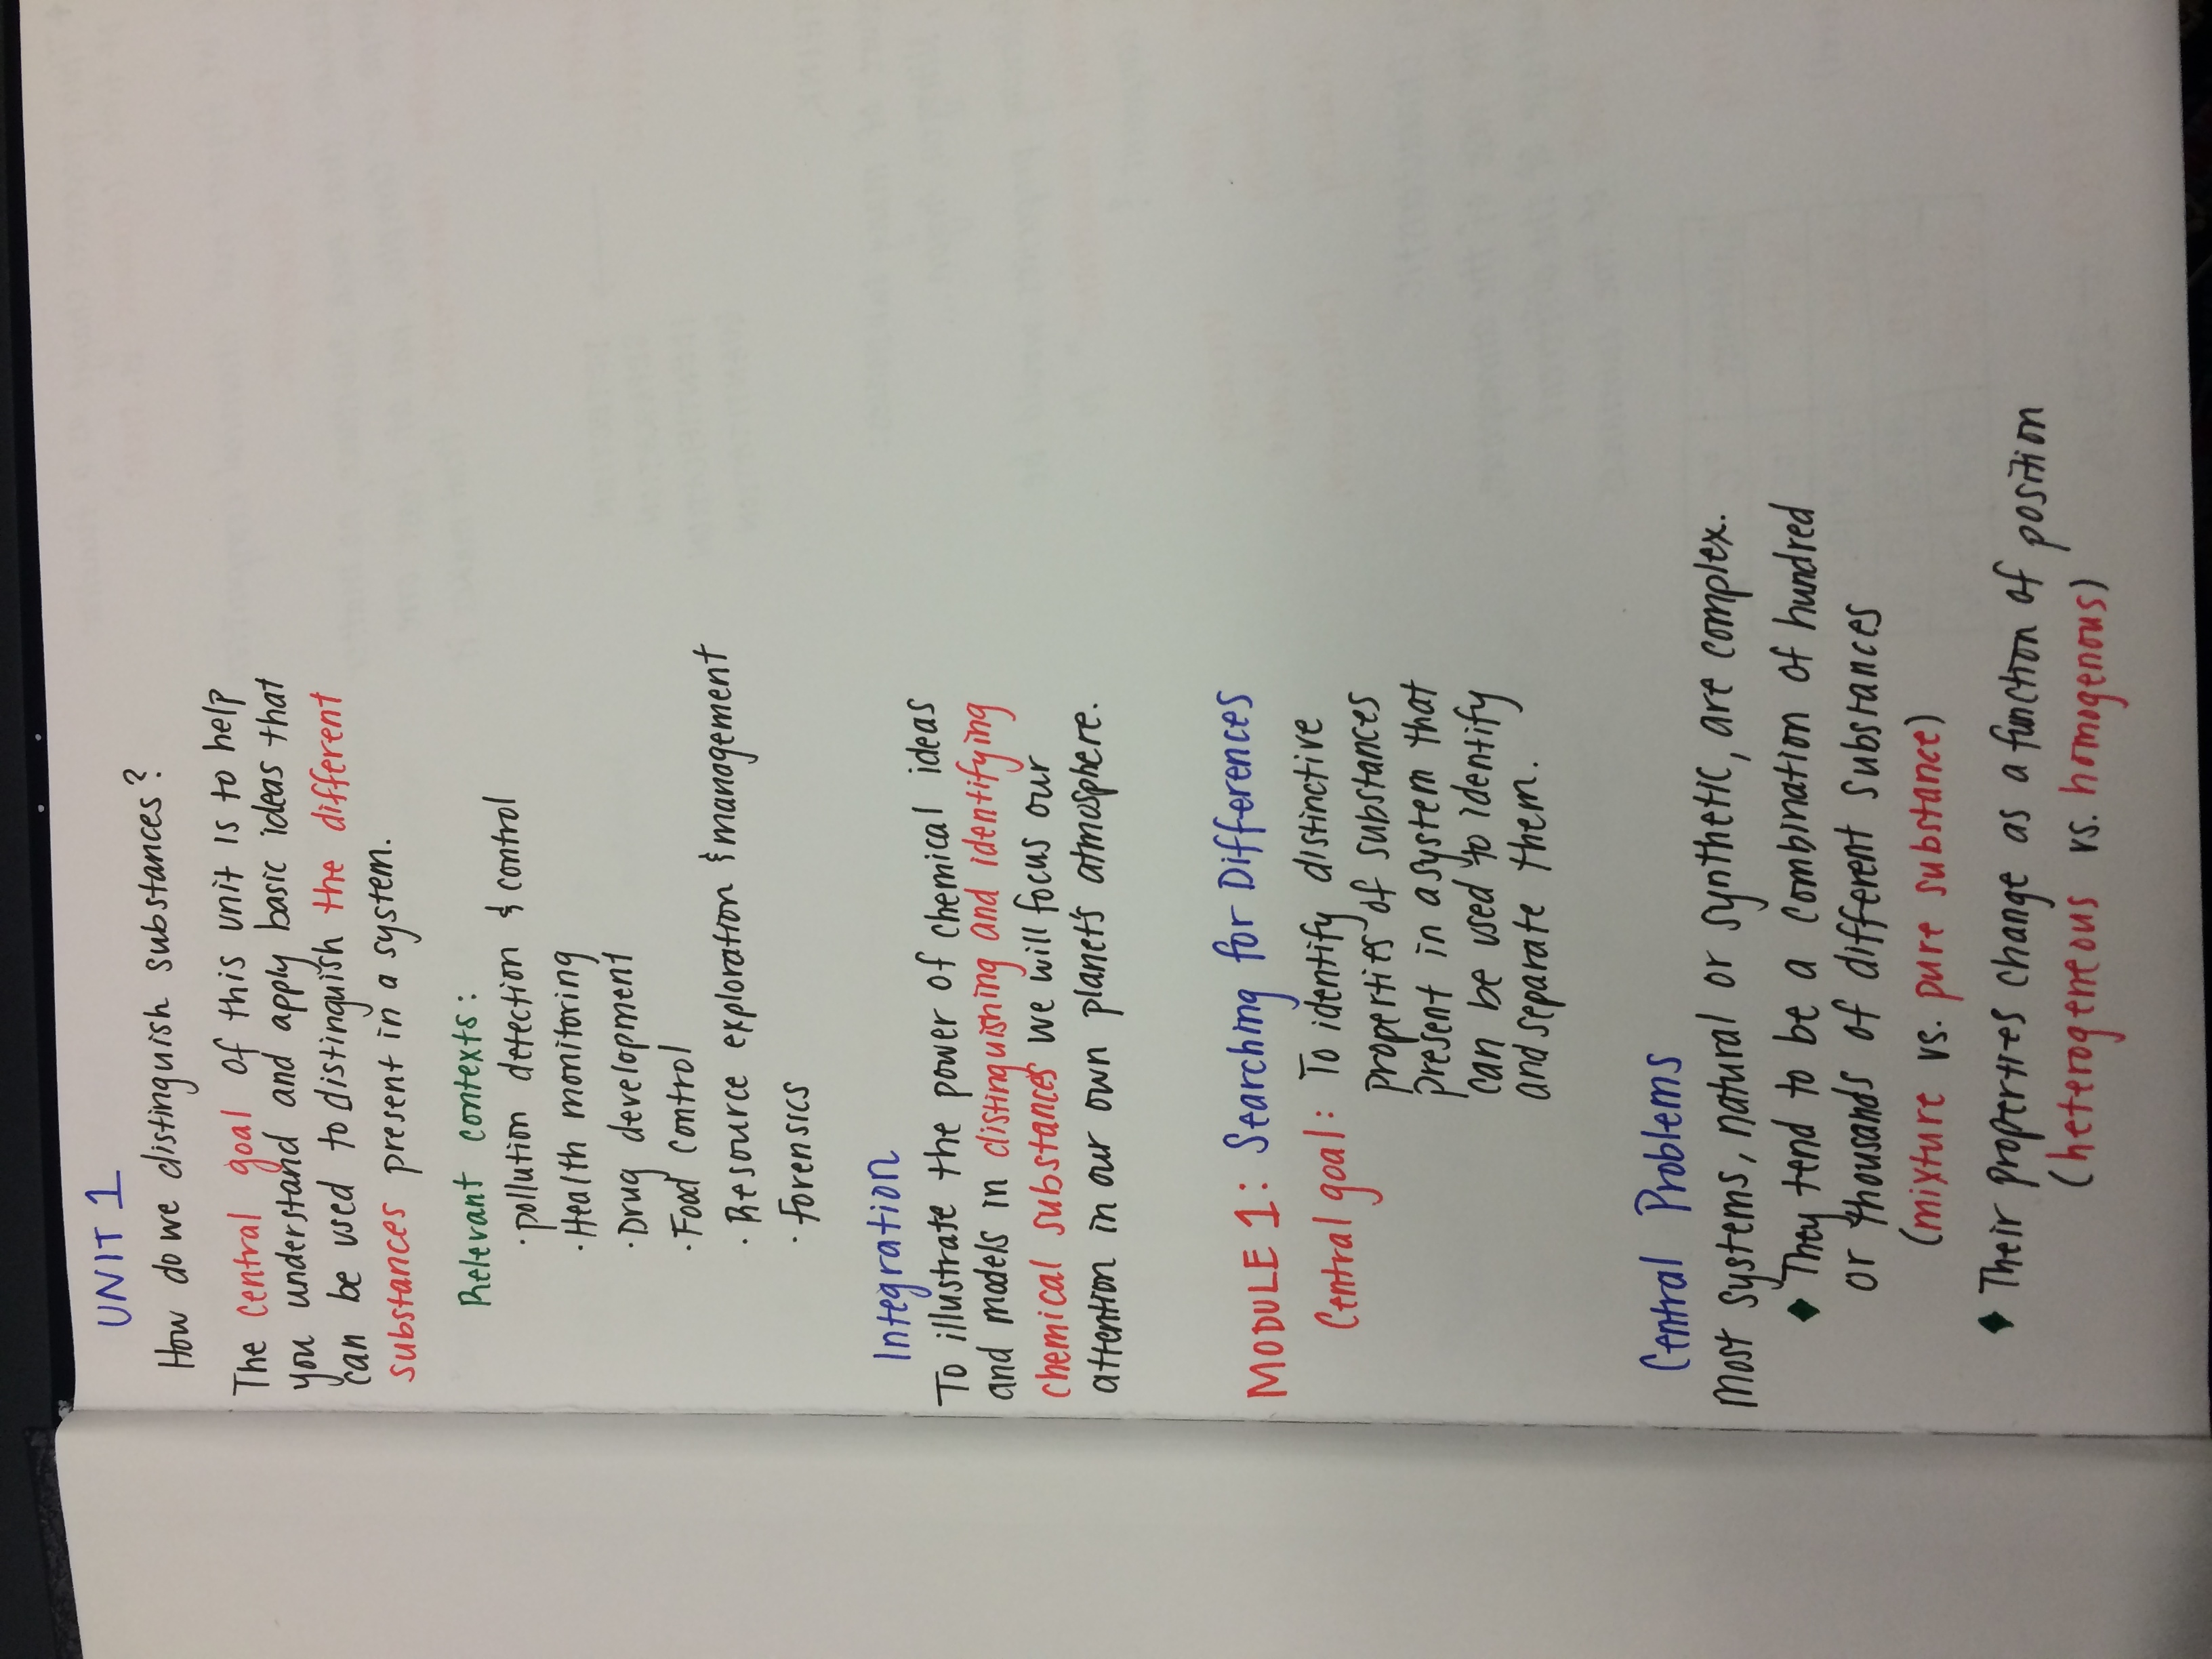 UNIT 1
How do we distinguish substances?
The central goal of this unit is to help
you understand and apply basic ideas that
can be used to distinguish the different
substances present in a system.
Relevant contexts:
· pollution detection & control
· Health monitoring
· Drug development
· Food control
· Resource exploration & management
· Forensics
Integration
To illustrate the power of chemical ideas
and models in distinguishing and identifying
chemical substances we will focus our
attention in our own planet's atmosphere.
MODULE 1: Searching for Differences
Central goal: To identify distinctive
properties of substances
present in a system that
can be used to identify
and separate them.
Central Problems
Most systems, natural or synthetic, are complex.
♦ They tend to be a combination of hundred
or thousands of different substances
(mixture vs. pure substance)
♦ Their properties change as a function of position
(heterogeneous vs. homogenous)